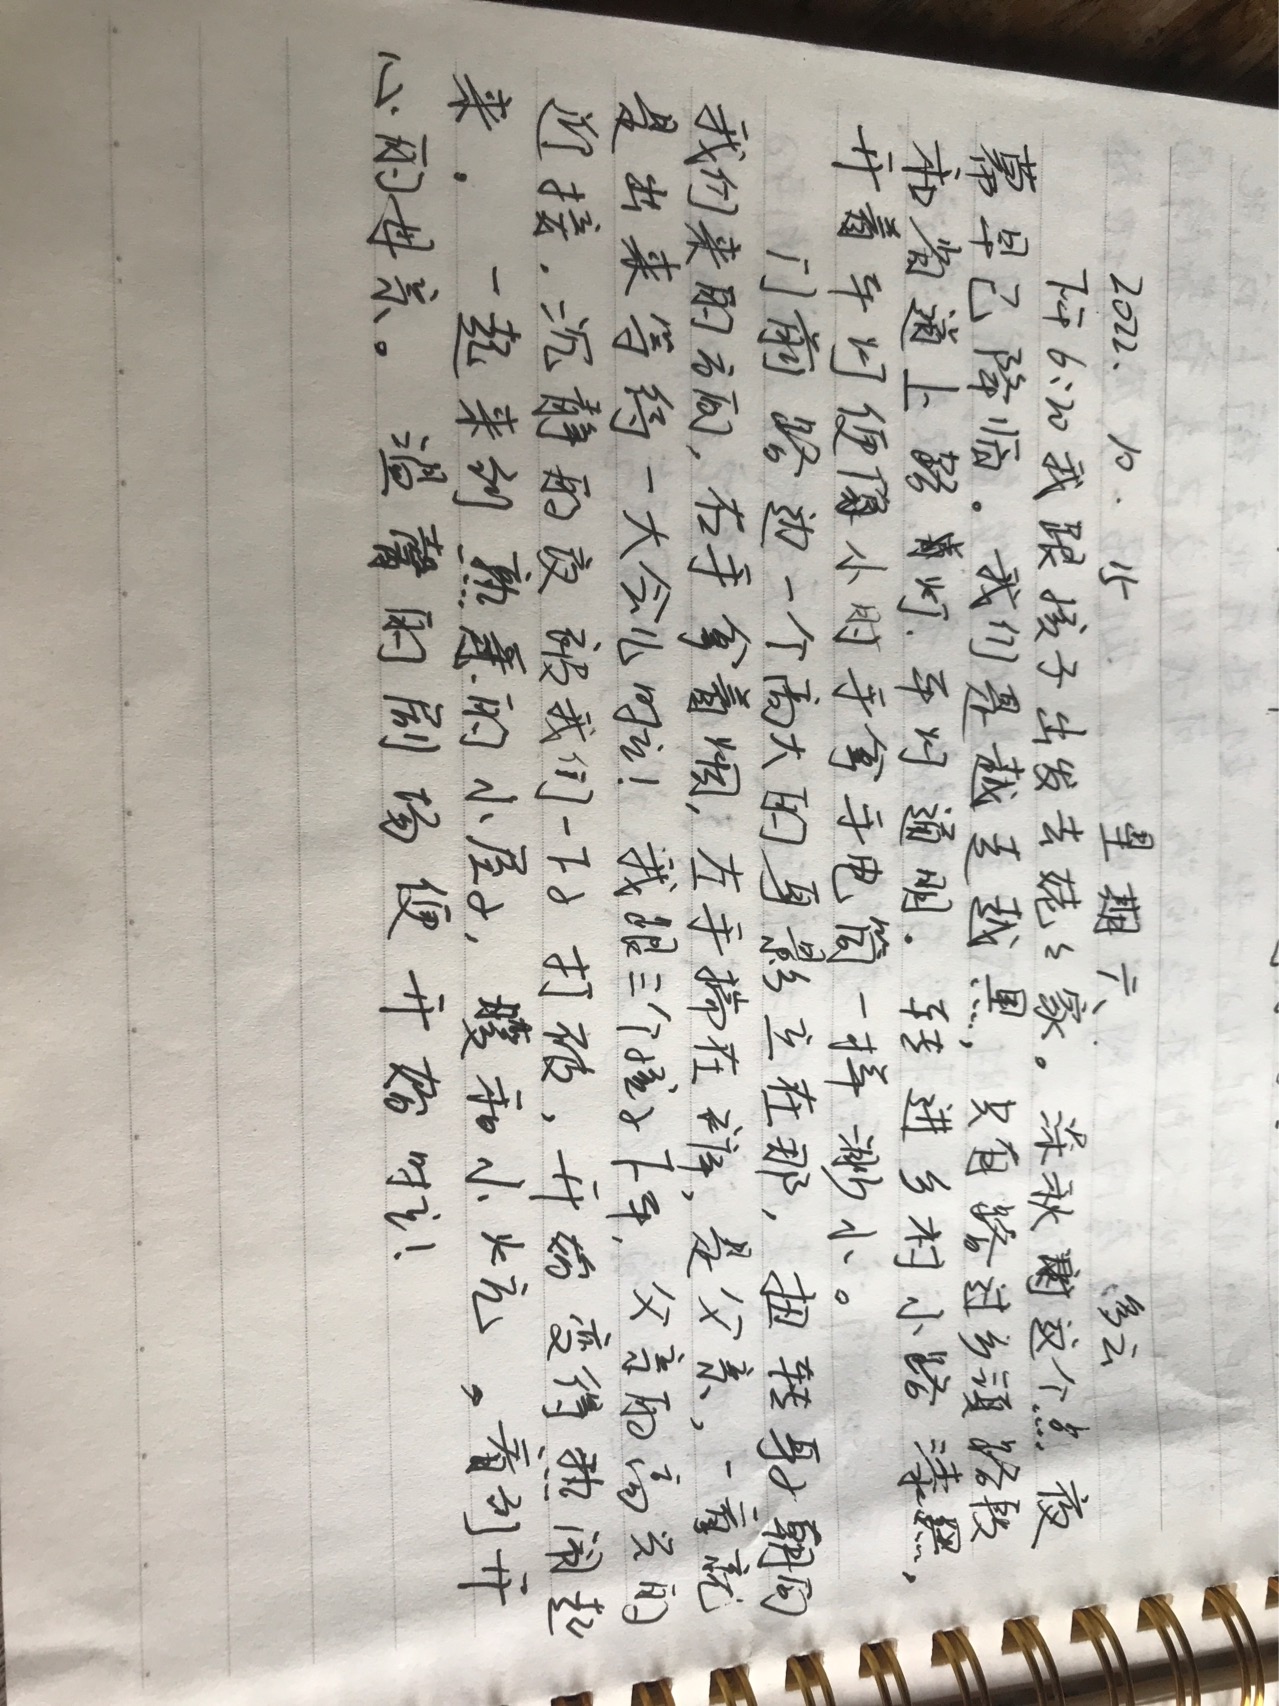 2022. 10. 15 星期六 多云
下午6:20我跟孩子出发去姥姥家。深秋这个点夜
幕早已降临。我们是越走越黑,只有路过乡镇路段
和省道上路灯.车灯通明.转进乡村小路漆黑,
开着车灯便像小时手拿手电筒一样渺小。
门前路边一个高大的身影立在那,扭转身子朝向
我们来的方向,右手拿着烟,左手揣在裤,是父亲,一看就
是出来等待一大会儿时间!我跟三个孩子下车,父亲的高兴的
迎接.沉静的夜被我们一下子打破,开始变得热闹起
来.一起来到熟悉的小屋子,暖和小火炕。看到开
心的母亲。温馨的剧场便开始时间!